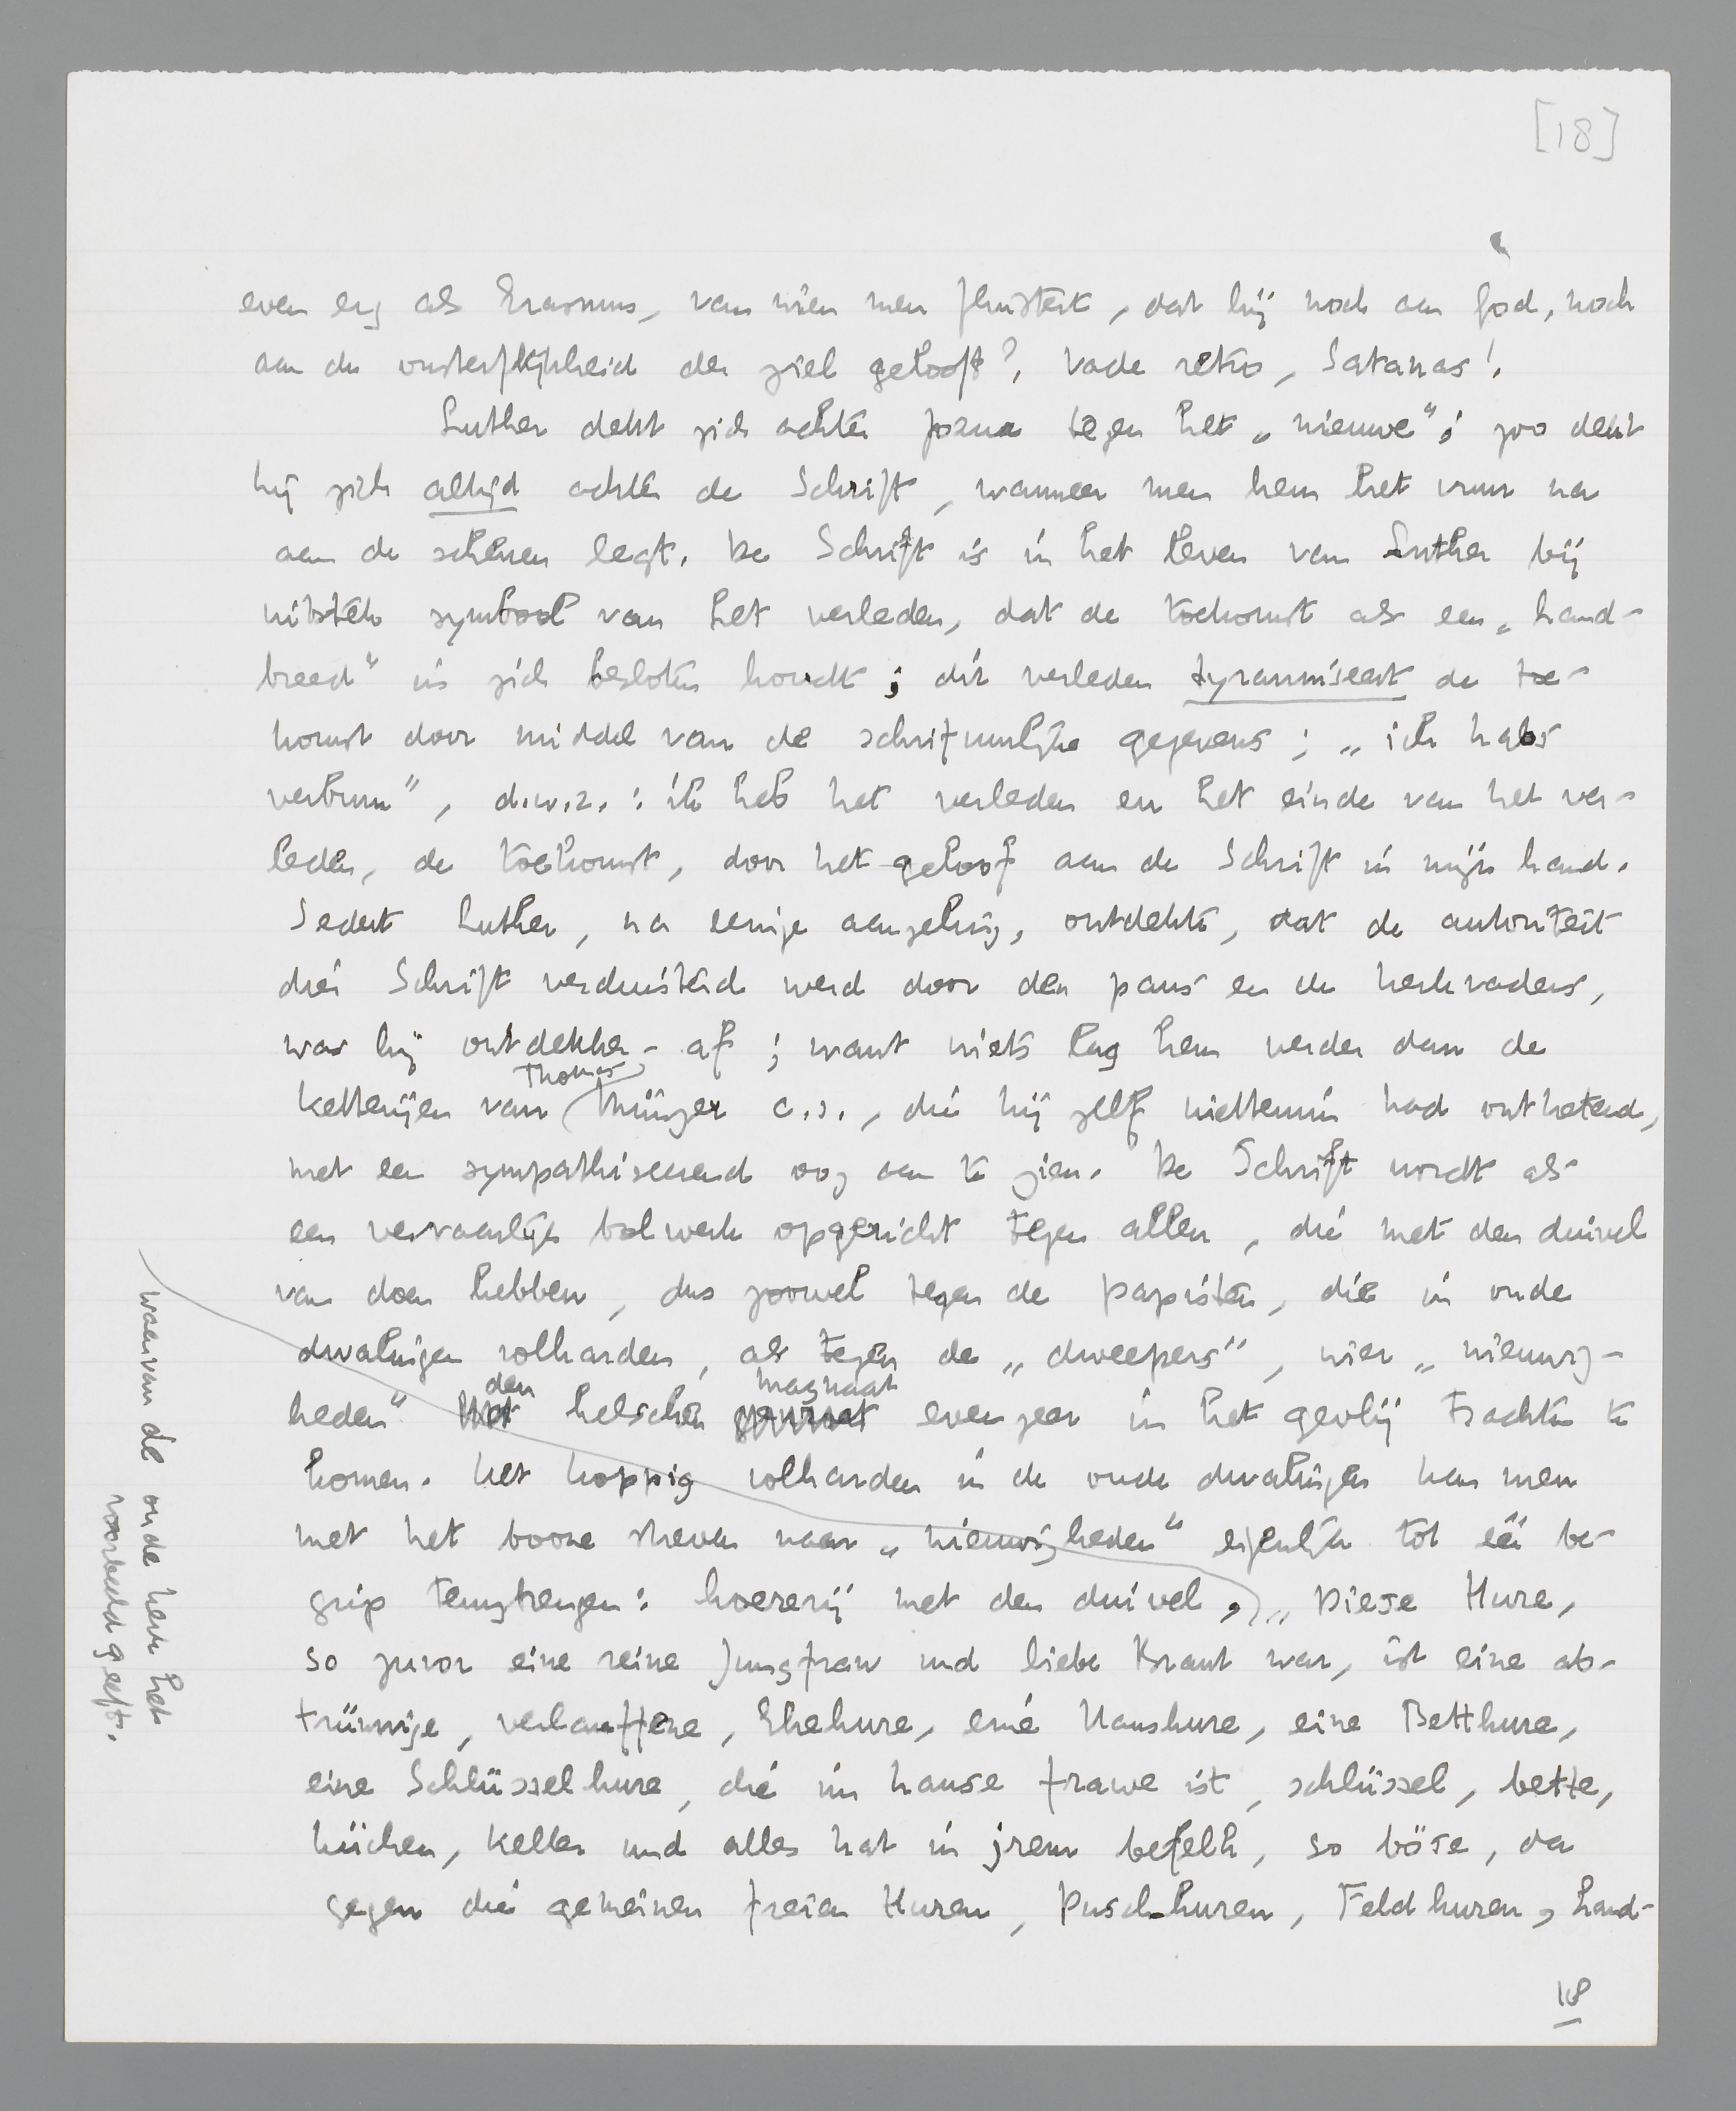 [18]
even erg als Erasmus, van wien men fluistert, dat hij noch aan God, noch
aan de onsterflijkheid der ziel gelooft? Vade retro, Satanas!
Luther dekt zich achter Jozua tegen het „nieuwe”; zoo dekt
hij zich altijd achter de Schrift, wanneer men hem het vuur na
aan de schenen legt. De Schrift is in het leven van Luther bij
uitstek symbool van het verleden, dat de toekomst als een „hand-
breed” in zich besloten houdt; dit verleden tyranniseert de toe-
komst door middel van de schriftuurlijke gegevens; „ich habs
verbum”, d.w.z.: ik heb het verleden en het einde van het ver-
leden, de toekomst, door het geloof aan de Schrift in mijn hand.
Sedert Luther, na eenige aarzeling, ontdekte, dat de autoriteit
dier Schrift verduisterd werd door den paus en de kerkvaders,
was hij ontdekker-af; want niets lag hem verder dan de
ketterijen van Thomas Münzer c.s., die hij zelf niettemin had ontketend,
met een sympathiseerend oog aan te zien. De Schrift wordt als
een vervaarlijk bolwerk opgericht tegen allen, die met den duivel
van doen hebben, dus zoowel tegen de papisten, die in oude
dwalingen volharden, als tegen de „dweepers”, wier „nieuwig-
heden” den helschen magnaat evenzeer in het gevlij trachten te
komen. Het koppig volharden in de oude dwalingen kan men
met het booze streven naar „nieuwigheden” eigenlijk tot één be-
grip terugbrengen: hoererij met den duivel, „Diese Hure,
so zuvor eine reine Jungfraw und liebe Braut war, ist eine ab-
trünnige, verlauffene, Ehehure, eine Haushure, eine Betthure,
eine Schlüsselhure, die im hause frawe ist, schlüssel, bette,
küchen, keller und alles hat in jrem befelh, so böse, da
gegen die gemeinen freien Huren, Puschhuren, Feldhuren, Land-
waarvan de oude kerk het
voorbeeld geeft.
18